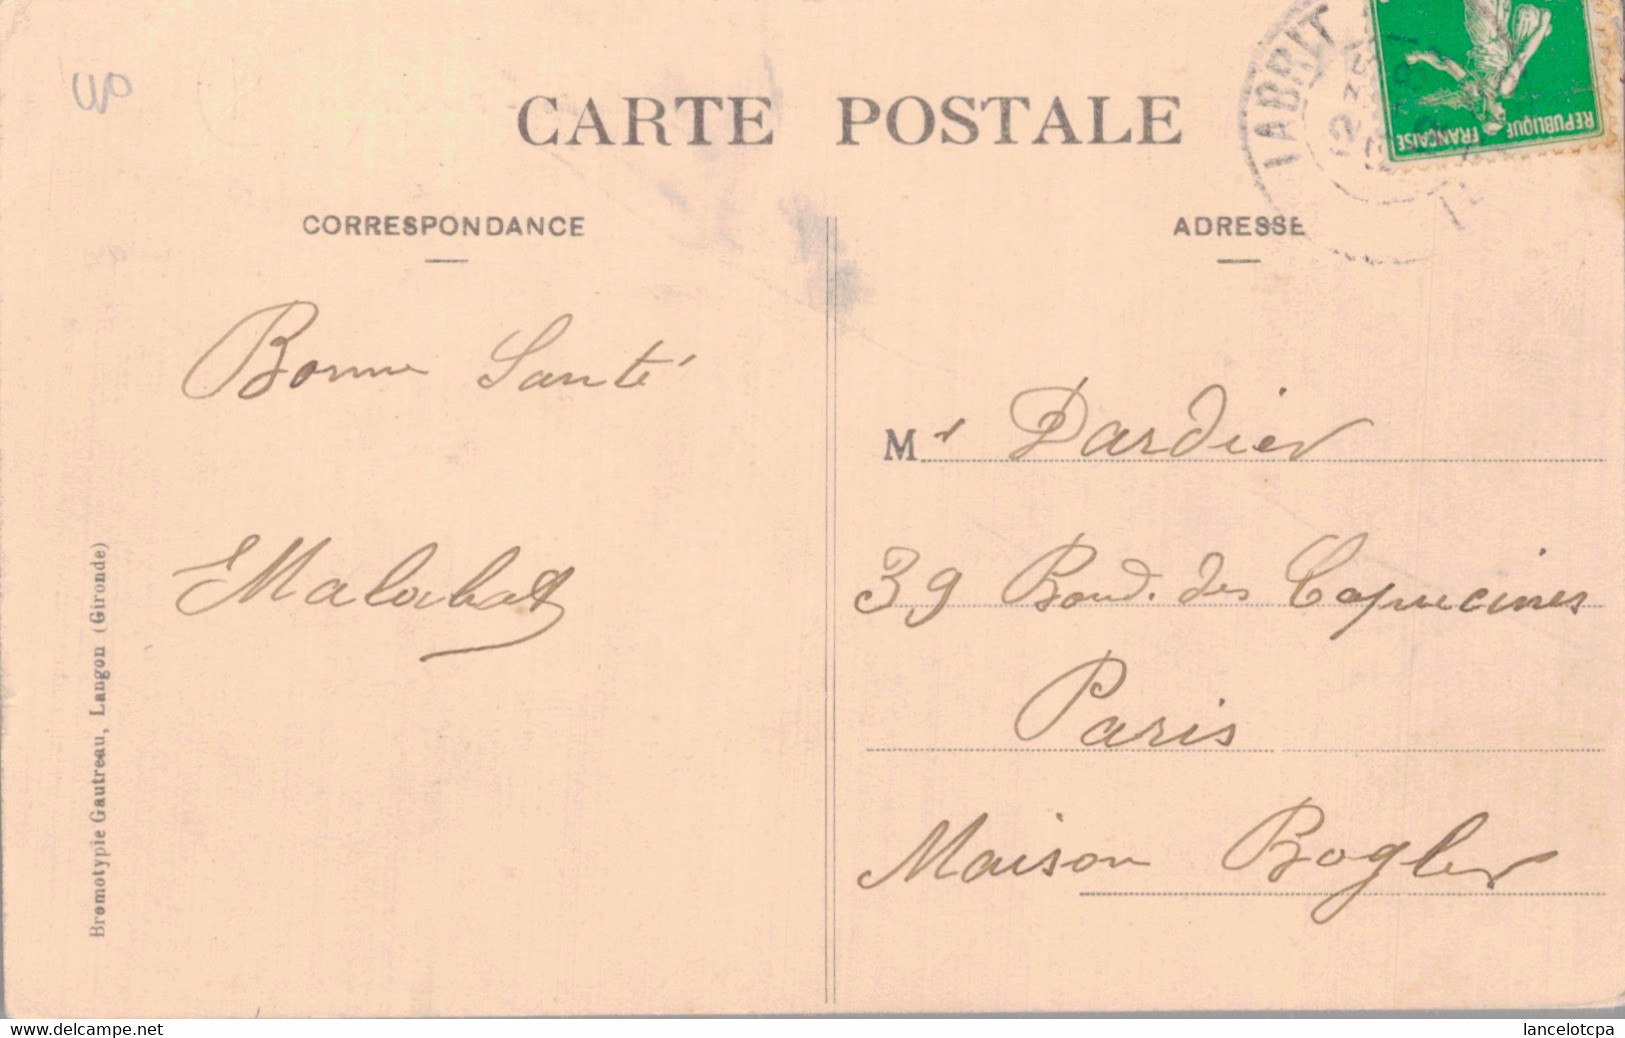 CARTE POSTALE
LABRIT
REPUBLIQUE FRANÇAISE
CORRESPONDANCE
ADRESSE
Bonne Santé
Malabat
Mr Dardier
39 Boud. des Capucines
Paris
Maison Bogler
Bromotypie Gautreau, Langon (Gironde)
www.delcampe.net
lancelotcpa